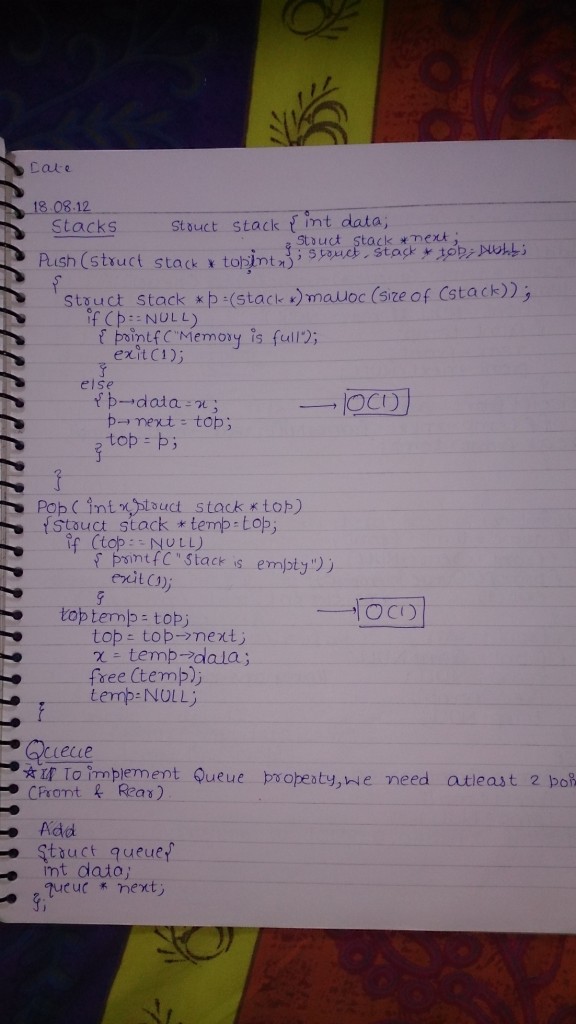 Date
18.08.12
Stacks   Struct stack { int data;
struct stack *next;
}; struct stack * top = NULL;
Push (struct stack * top, int x)
{
struct stack *p = (stack *) malloc (size of (stack));
if (p == NULL)
{ printf("Memory is full");
exit(1);
}
else
{ p→data = x; → O(1)
p→next = top;
top = p;
}
}
Pop ( int x, struct stack * top)
{ struct stack * temp = top;
if (top == NULL)
{ printf("Stack is empty");
exit(1);
}
top temp = top; → O(1)
top = top→next;
x = temp→data;
free (temp);
temp = NULL;
}
Queue
* If To implement Queue property, we need atleast 2
(Front & Rear)
Add
Struct queue{
int data;
queue * next;
};